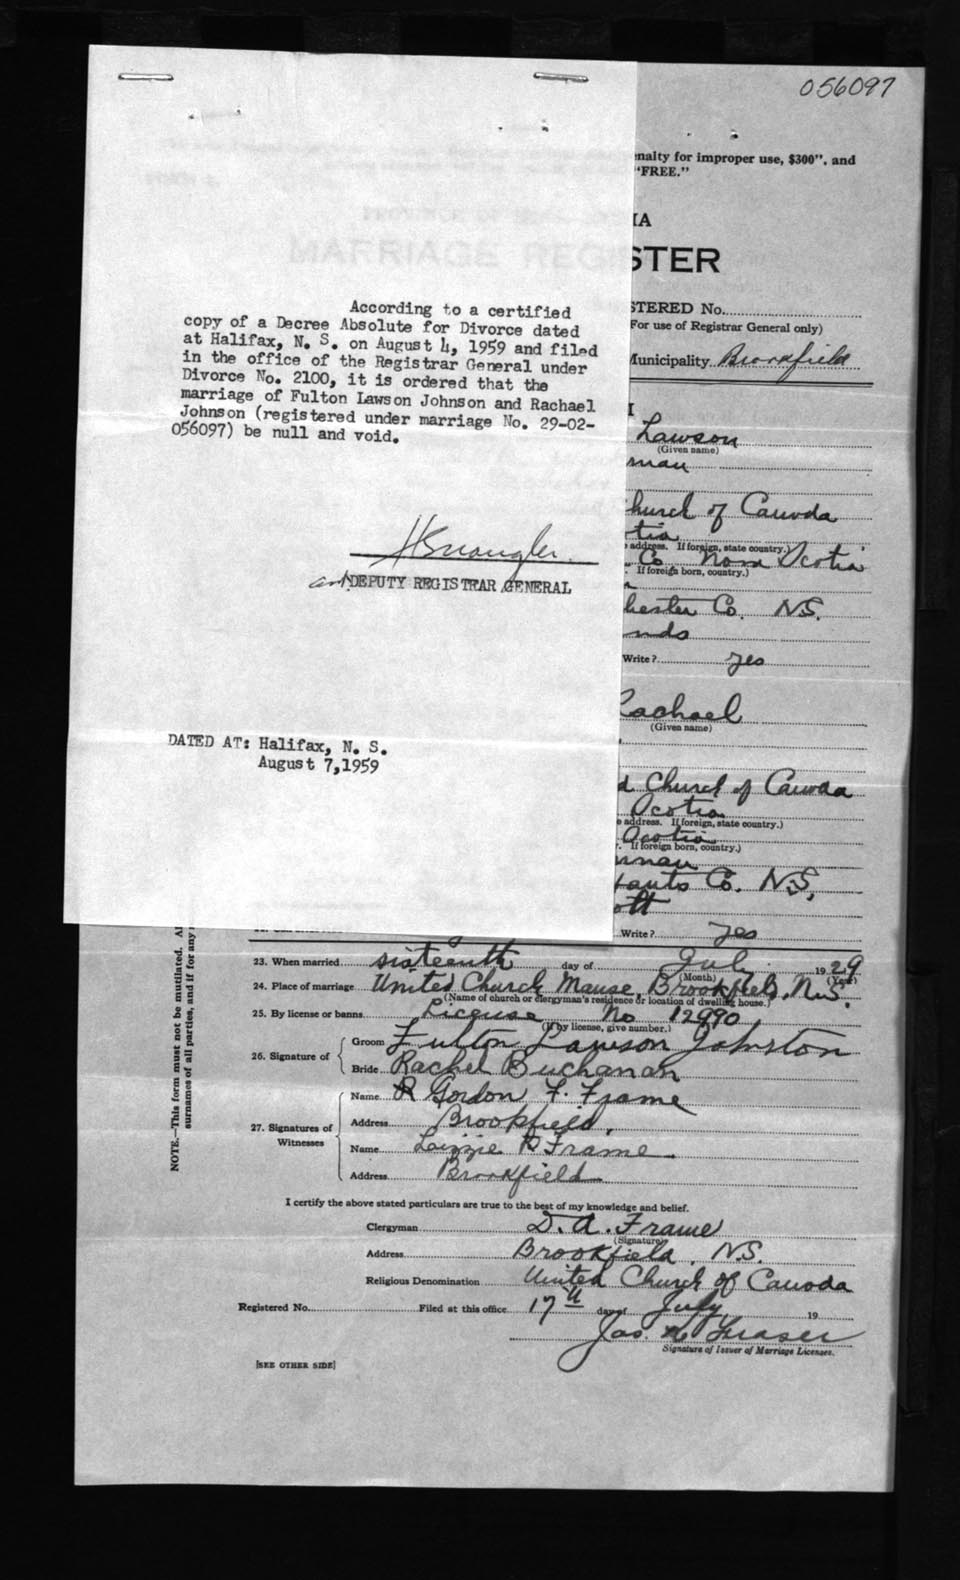 056097
enalty for improper use, $300". and
"FREE."
IA
STER
STERED No.
(For use of Registrar General only)
Municipality Brookfield
According to a certified
copy of a Decree Absolute for Divorce dated
at Halifax, N. S. on August 4, 1959 and filed
in the office of the Registrar General under
Divorce No. 2100, it is ordered that the
marriage of Fulton Lawson Johnson and Rachael
Johnson (registered under marriage No. 29-02-
056097) be null and void.
DEPUTY REGISTRAR GENERAL
DATED AT: Halifax, N. S.
August 7,1959
Lawson
(Given name)
rman
hurch of Canada
tia
address. If foreign, state country.)
Co Nova Scotia
If foreign born, country.)
hester Co. N.S.
nds
Write? yes
Rachael
(Given name)
d Church of Canada
Scotia
address. If foreign, state country.)
Scotia
If foreign born, country.)
nnan
Hants Co. N.S.
ott
Write? yes
NOTE.—This form must not be mutilated. Al
surnames of all parties, and if for any
23. When married sixteenth day of July 1929
(Month) (Year)
24. Place of marriage United Church Manse, Brookfield, N.S.
(Name of church or clergyman's residence or location of dwelling house.)
25. By license or banns License No 12990
(If by license, give number.)
26. Signature of Groom Fulton Lawson Johnston
Bride Rachel Buchanan
27. Signatures of Witnesses
Name R Gordon F. Frame
Address Brookfield.
Name Lizzie R Frame
Address Brookfield
I certify the above stated particulars are true to the best of my knowledge and belief.
Clergyman D. A. Frame
(Signature)
Address Brookfield, N.S.
Religious Denomination United Church of Canada
Registered No. Filed at this office 17th day of July 19
Jas. Fraser
Signature of Issuer of Marriage Licenses.
[SEE OTHER SIDE]